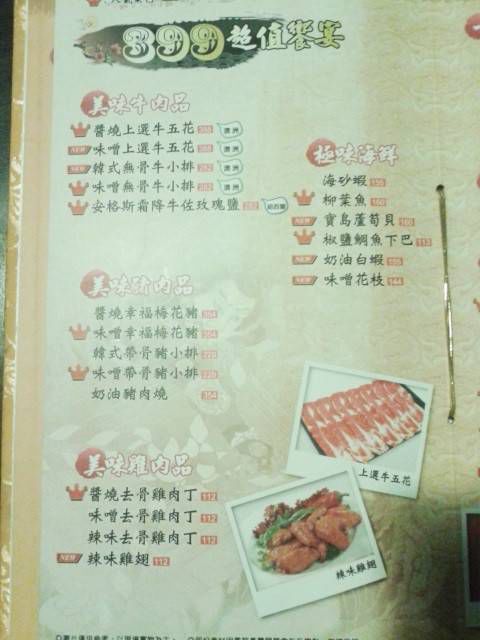 399超值饗宴
美味牛肉品
醬燒上選牛五花 澳洲
NEW 味噌上選牛五花 澳洲
NEW 韓式無骨牛小排 282 澳洲
味噌無骨牛小排 282 澳洲
安格斯霜降牛佐玫瑰鹽 282
極味海鮮
海砂蝦 155
柳葉魚 160
NEW 寶島蘆筍貝 160
椒鹽鯛魚下巴 113
NEW 奶油白蝦 155
NEW 味噌花枝 144
美味豬肉品
醬燒幸福梅花豬 354
味噌幸福梅花豬 354
韓式帶骨豬小排 225
味噌帶骨豬小排 225
奶油豬肉燒 354
上選牛五花
美味雞肉品
醬燒去骨雞肉丁 112
味噌去骨雞肉丁 112
辣味去骨雞肉丁 112
NEW 辣味雞翅 112
辣味雞翅